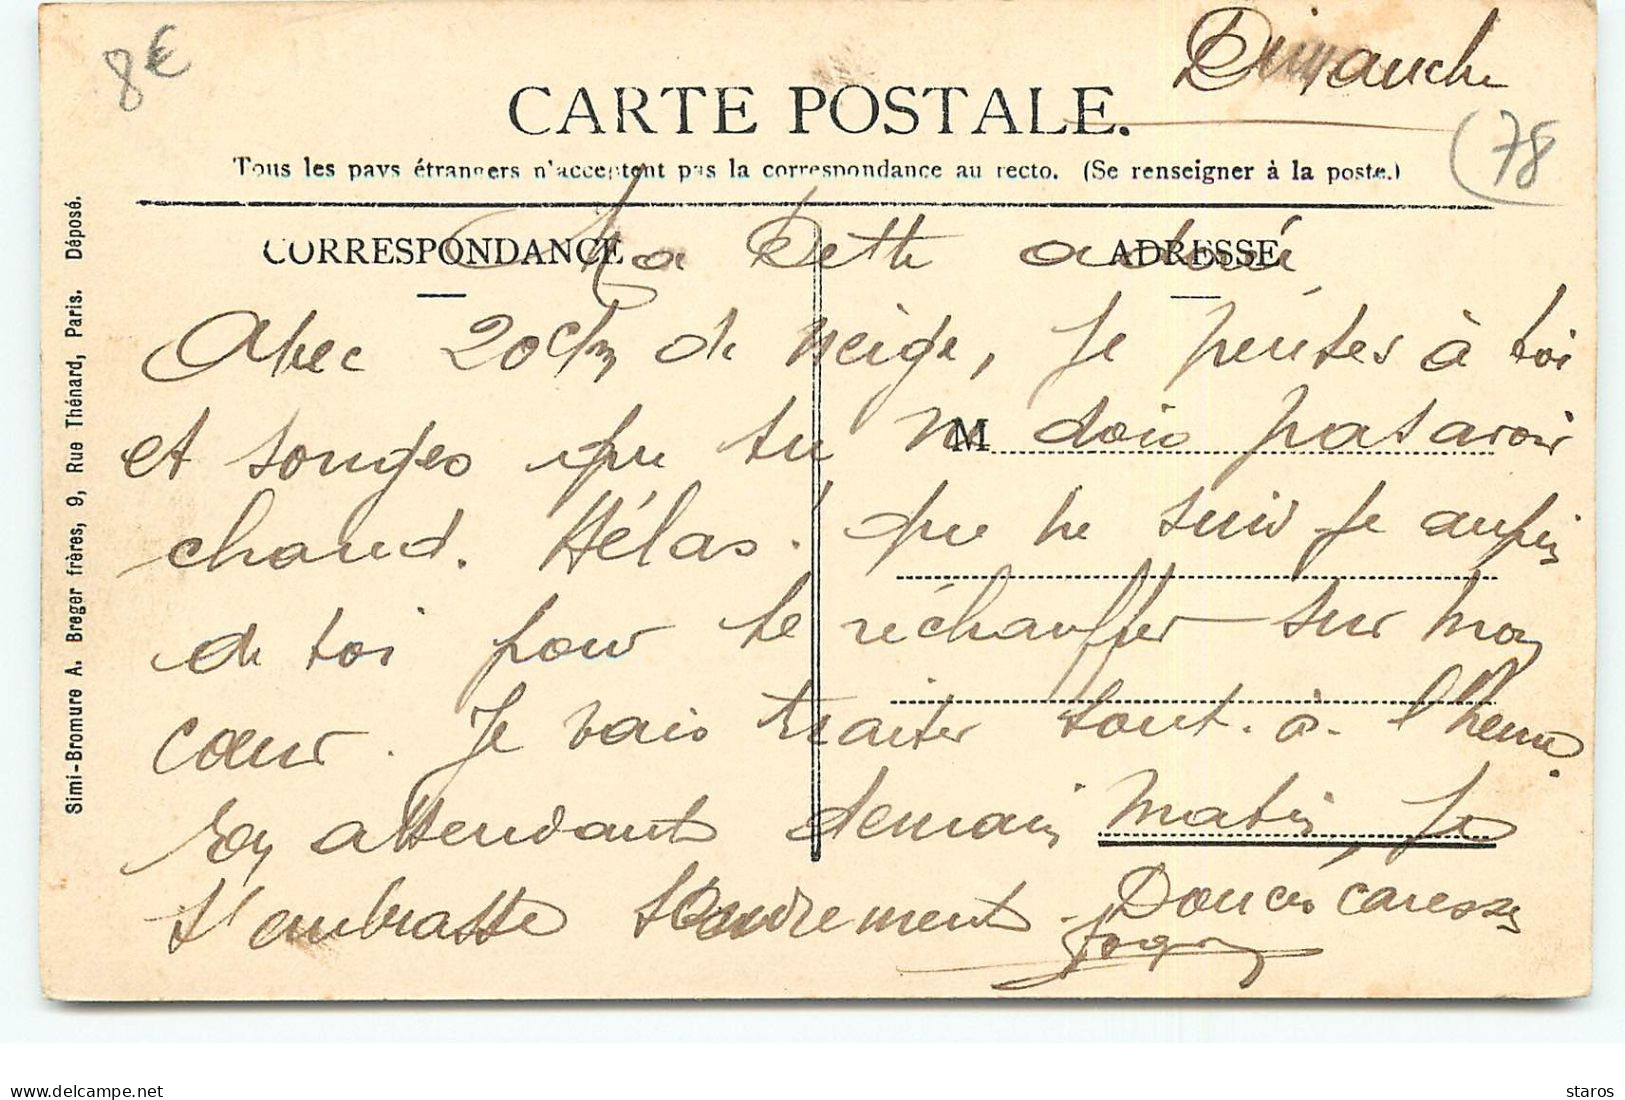 8€
Dimanche
CARTE POSTALE.
(78
Tous les pays étrangers n'acceptent pas la correspondance au recto. (Se renseigner à la poste.)
CORRESPONDANCE
ADRESSE
Ma Dette adoré
Avec 20 c/m de neige, je penses à toi
et songes que tu ne dois pas avoir
M
chaud. Hélas! que ne suis je auprès
de toi pour te réchauffer sur mon
cœur. Je vais traiter tout-à-l'heure.
En attendant demain matin, je
t'embrasse tendrement. Douces caresses
Simi-Bromure A. Breger frères, 9, Rue Thénard, Paris. Déposé.
www.delcampe.net
staros